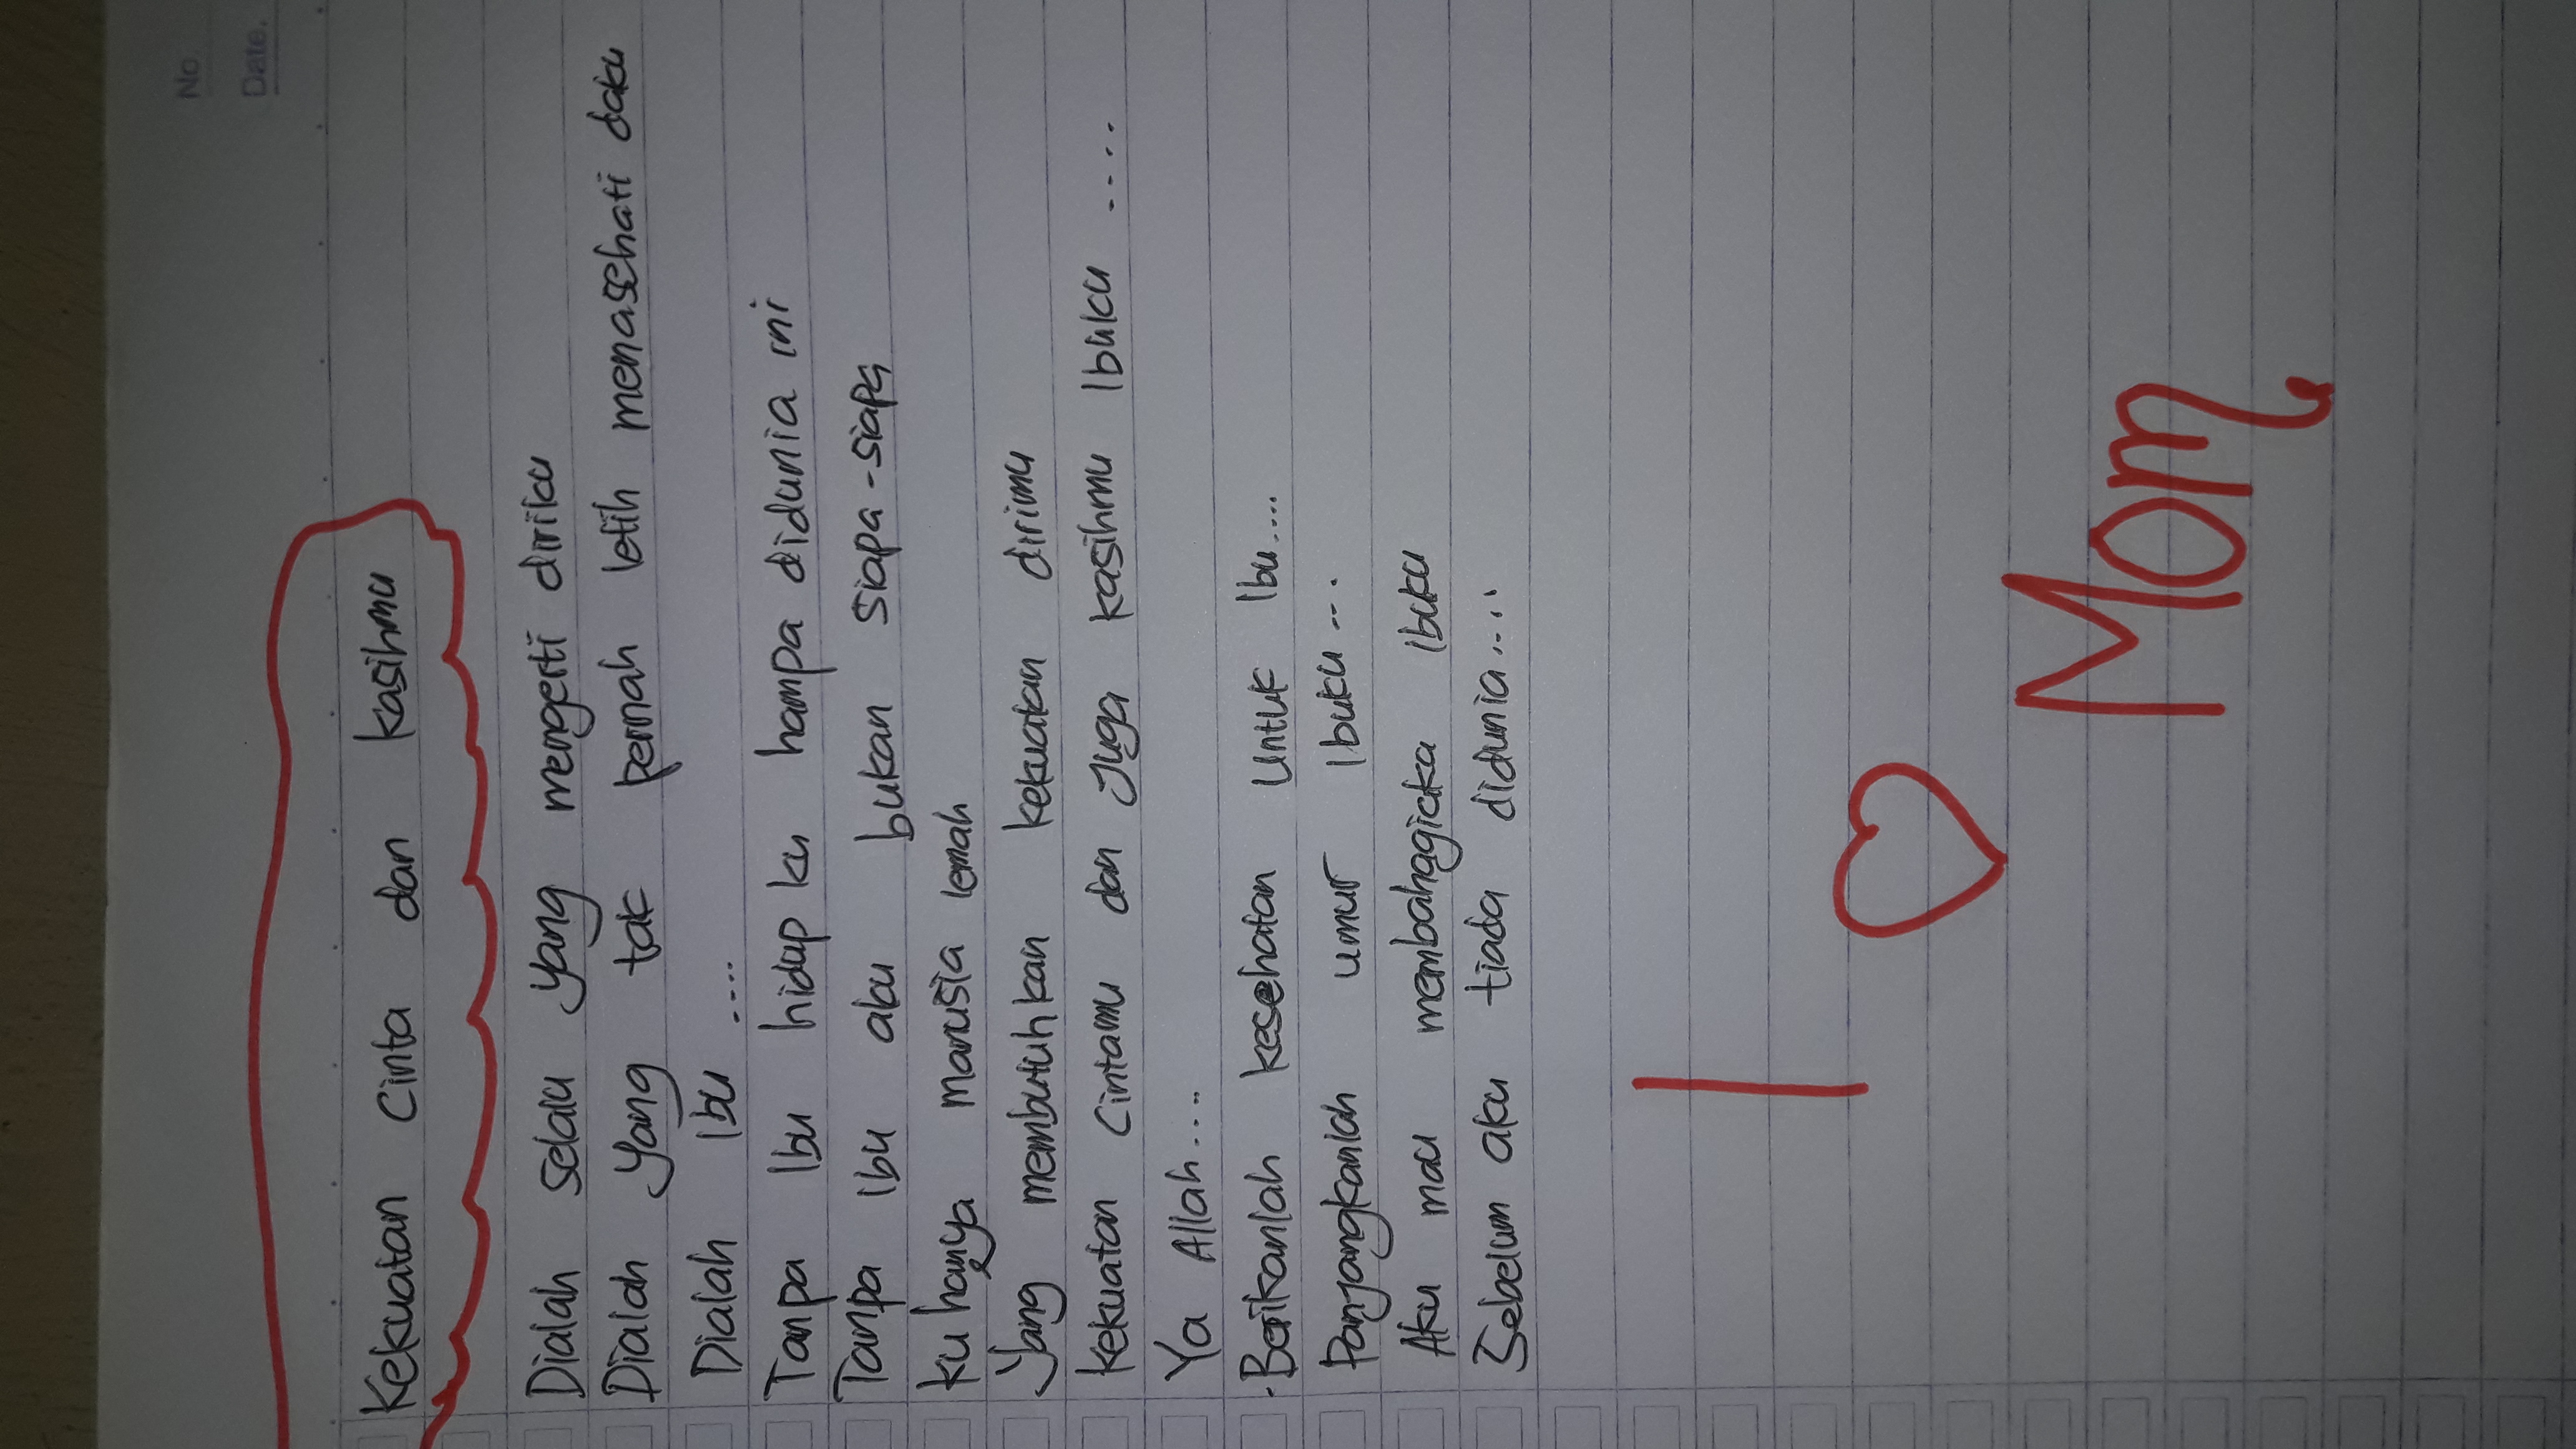 No.
Date.
Kekuatan cinta dan kasihmu
Dialah selalu yang mengerti diriku
Dialah yang tak pernah letih menasehati daku
Dialah Ibu ....
Tanpa Ibu hidup ku hampa didunia ini
Tanpa Ibu aku bukan siapa-siapa
ku hanya manusia lemah
Yang membutuhkan kekuatan dirimu
Kekuatan Cintamu dan Juga kasihmu Ibuku ....
Ya Allah....
Berikanlah kesehatan Untuk Ibu....
Panjangkanlah umur Ibuku...
Aku mau membahagiaka Ibuku
Sebelum aku tiada didunia....
I
♡
Mom